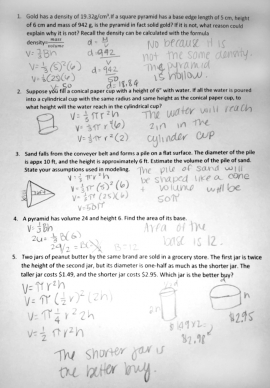 1. Gold has a density of 19.32g/cm³. If a square pyramid has a base edge length of 5 cm, height
of 6 cm and mass of 942 g, is the pyramid in fact solid gold? If it is not, what reason could
explain why it is not? Recall the density can be calculated with the formula
density= mass/volume
d = M/V
No because it is
V= ⅓Bh
d=942
not the same density.
V= ⅓(5)²(6)
V
The pyramid
V= ⅓(25)(6)
d= 942/50
is hollow.
V= 50
d= 18.84
2. Suppose you fill a conical paper cup with a height of 6" with water. If all the water is poured
into a cylindrical cup with the same radius and same height as the conical paper cup, to
what height will the water reach in the cylindrical cup?
V= ⅓πr²h
The water will reach
V= ⅓πr²(6)
2 in in the
V= πr²(2)
cylinder cup
3. Sand falls from the conveyor belt and forms a pile on a flat surface. The diameter of the pile
is appx 10 ft, and the height is approximately 6 ft. Estimate the volume of the pile of sand.
State your assumptions used in modeling.
The pile of sand will
V= ⅓πr²h
be shaped like a cone
V= ⅓π(5)²(6)
volume will be
V= ⅓π(25)(6)
50π
V=50π
4. A pyramid has volume 24 and height 6. Find the area of its base.
V= ⅓Bh
Area of the
24= ⅓B(6)
base is 12.
B=12
5. Two jars of peanut butter by the same brand are sold in a grocery store. The first jar is twice
the height of the second jar, but its diameter is one-half as much as the shorter jar. The
taller jar costs $1.49, and the shorter jar costs $2.95. Which jar is the better buy?
V= πr²h
V= π(½r)²(2h)
V= π¼r²2h
V= ½πr²h
$1.49 x2
$2.98
$2.95
The shorter jar is
the better buy.